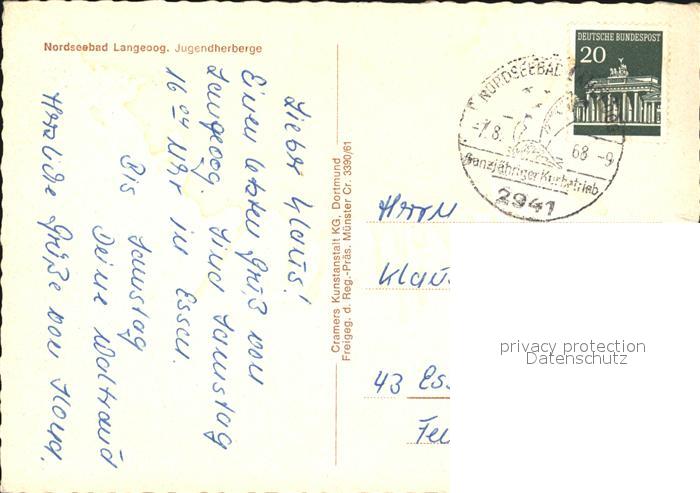 Nordseebad Langeoog. Jugendherberge
Lieber Klaus!
Einen letzten Gruß von
Langeoog. Sind Samstag
16 04 Uhr in Essen.
Bis Samstag
Deine Waltraud
Herzliche Grüße von
Cramers Kunstanstalt KG. Dortmund
Freigeg. d. Reg.-Präs. Münster Cr. 3390/61
DEUTSCHE BUNDESPOST
20
NORDSEEBAD
-7.8. 68-9
Ganzjähriger Kurbetrieb
2941
Herrn
Klaus
43 Es
privacy protection
Datenschutz